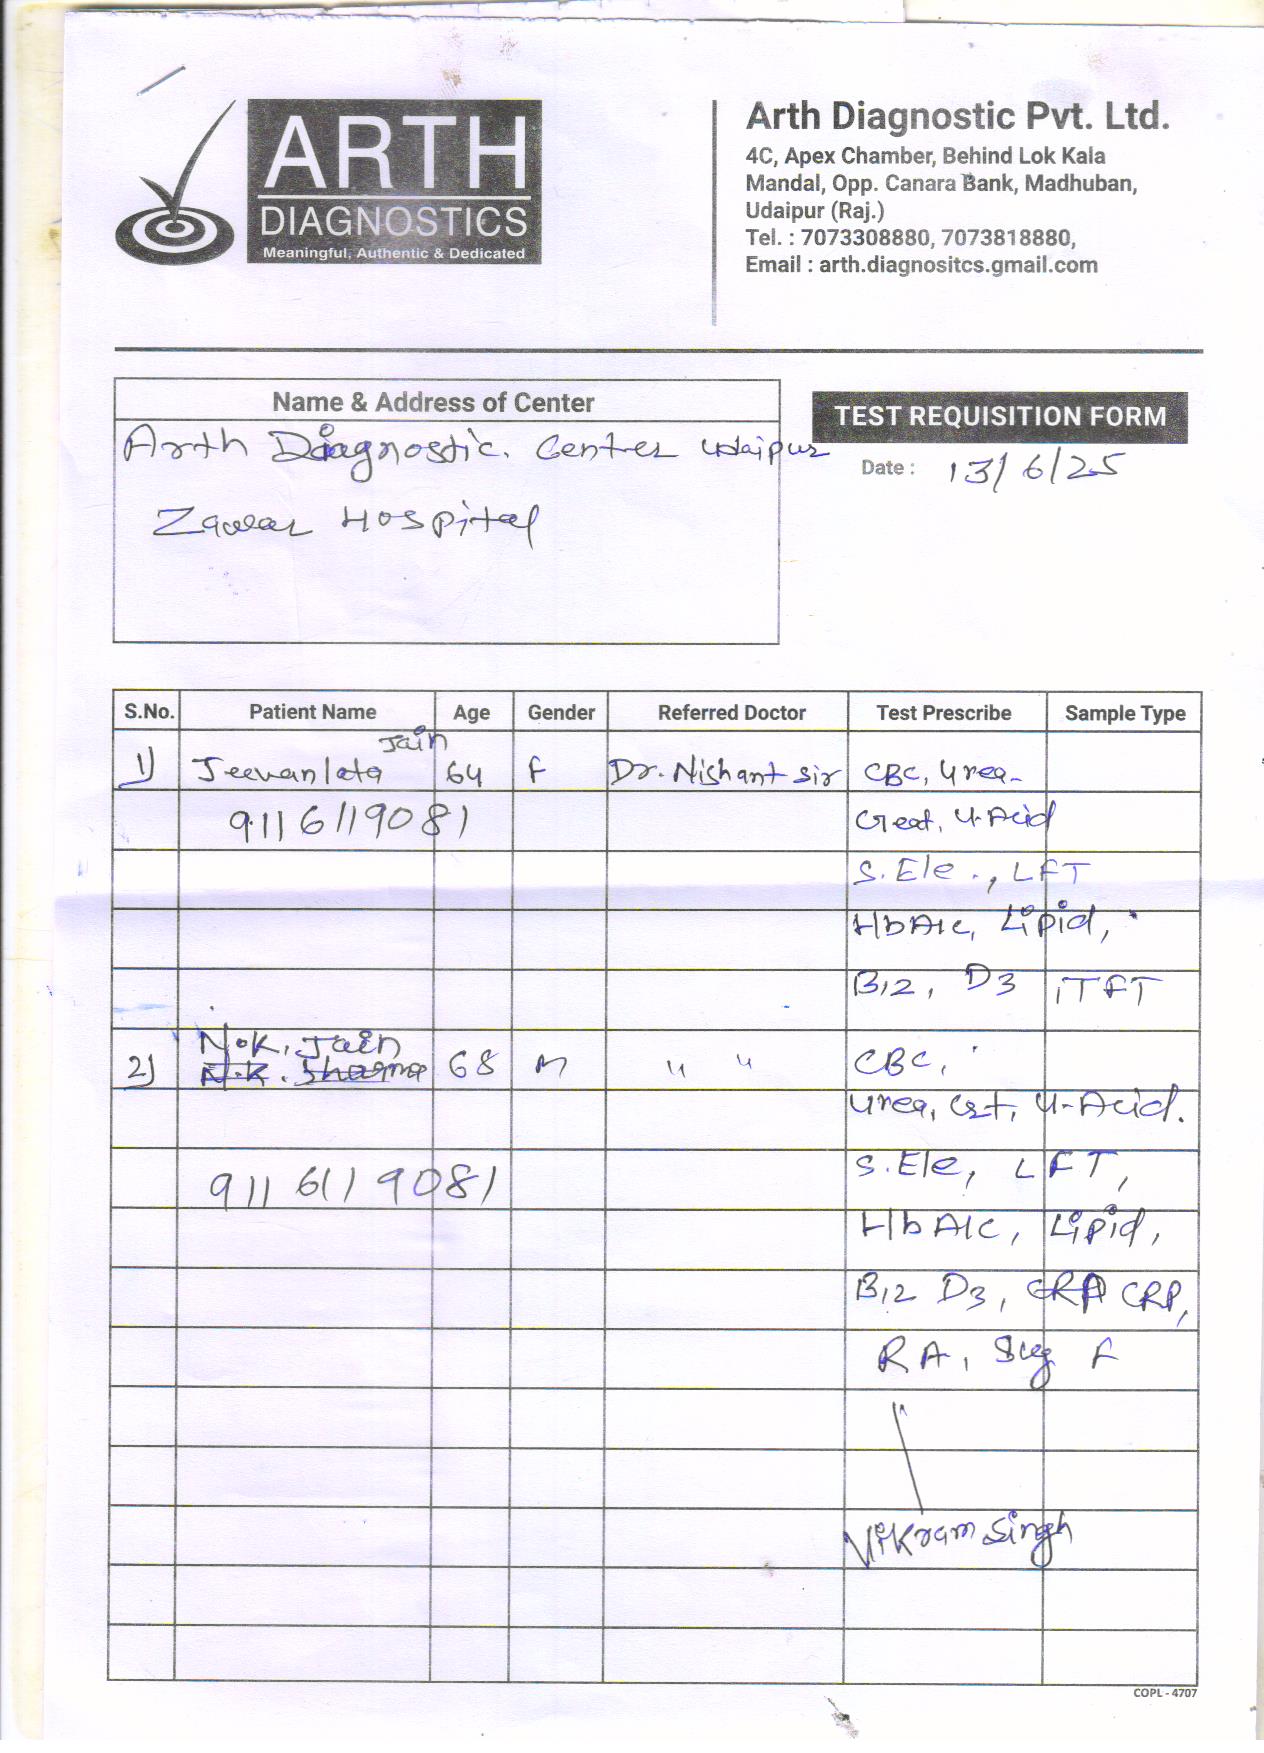 ARTH
DIAGNOSTICS
Meaningful, Authentic & Dedicated
Arth Diagnostic Pvt. Ltd.
4C, Apex Chamber, Behind Lok Kala
Mandal, Opp. Canara Bank, Madhuban,
Udaipur (Raj.)
Tel. : 7073308880, 7073818880,
Email : arth.diagnositcs.gmail.com
Name & Address of Center
Arth Diagnostic. Center Udaipur
Zawar Hospital
TEST REQUISITION FORM
Date : 13/6/25
S.No. Patient Name Age Gender Referred Doctor Test Prescribe Sample Type
1) Jeevanlata Jain 64 F Dr. Nishant Sir CBC, Urea-
9116119081 Creat, U-Acid
S. Ele ., LFT
HbA1c, Lipid,
B12, D3 TFT
N.K. Jain
2) N.K. Sharma 68 M " " CBC,
Urea, Crt, U-Acid.
9116119081 S.Ele, LFT,
HbA1c, Lipid,
B12 D3, CRP,
RA, Sug F
Vikram Singh
COPL - 4707